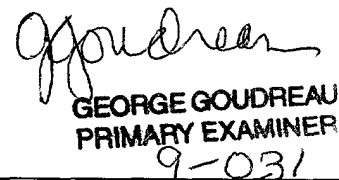 GGoudreau
GEORGE GOUDREAU
PRIMARY EXAMINER
9-031